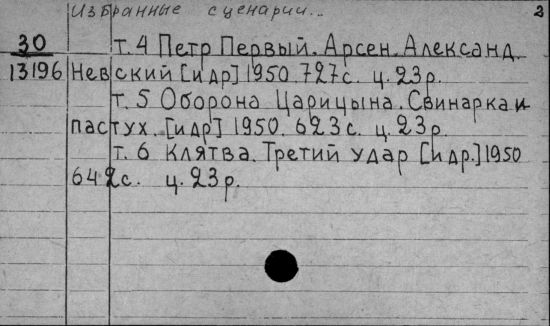 Избранные сценарии... 2
30 т. 4 Петр Первый. Арсен. Александ.
13196 Невский [и др] 1950. 727с. ц. 23р.
т. 5 Оборона Царицына. Свинарка и
пастух. [и др] 1950. 623с. ц. 23р.
т. 6 Клятва. Третий удар [и др.] 1950
642с. ц. 23р.